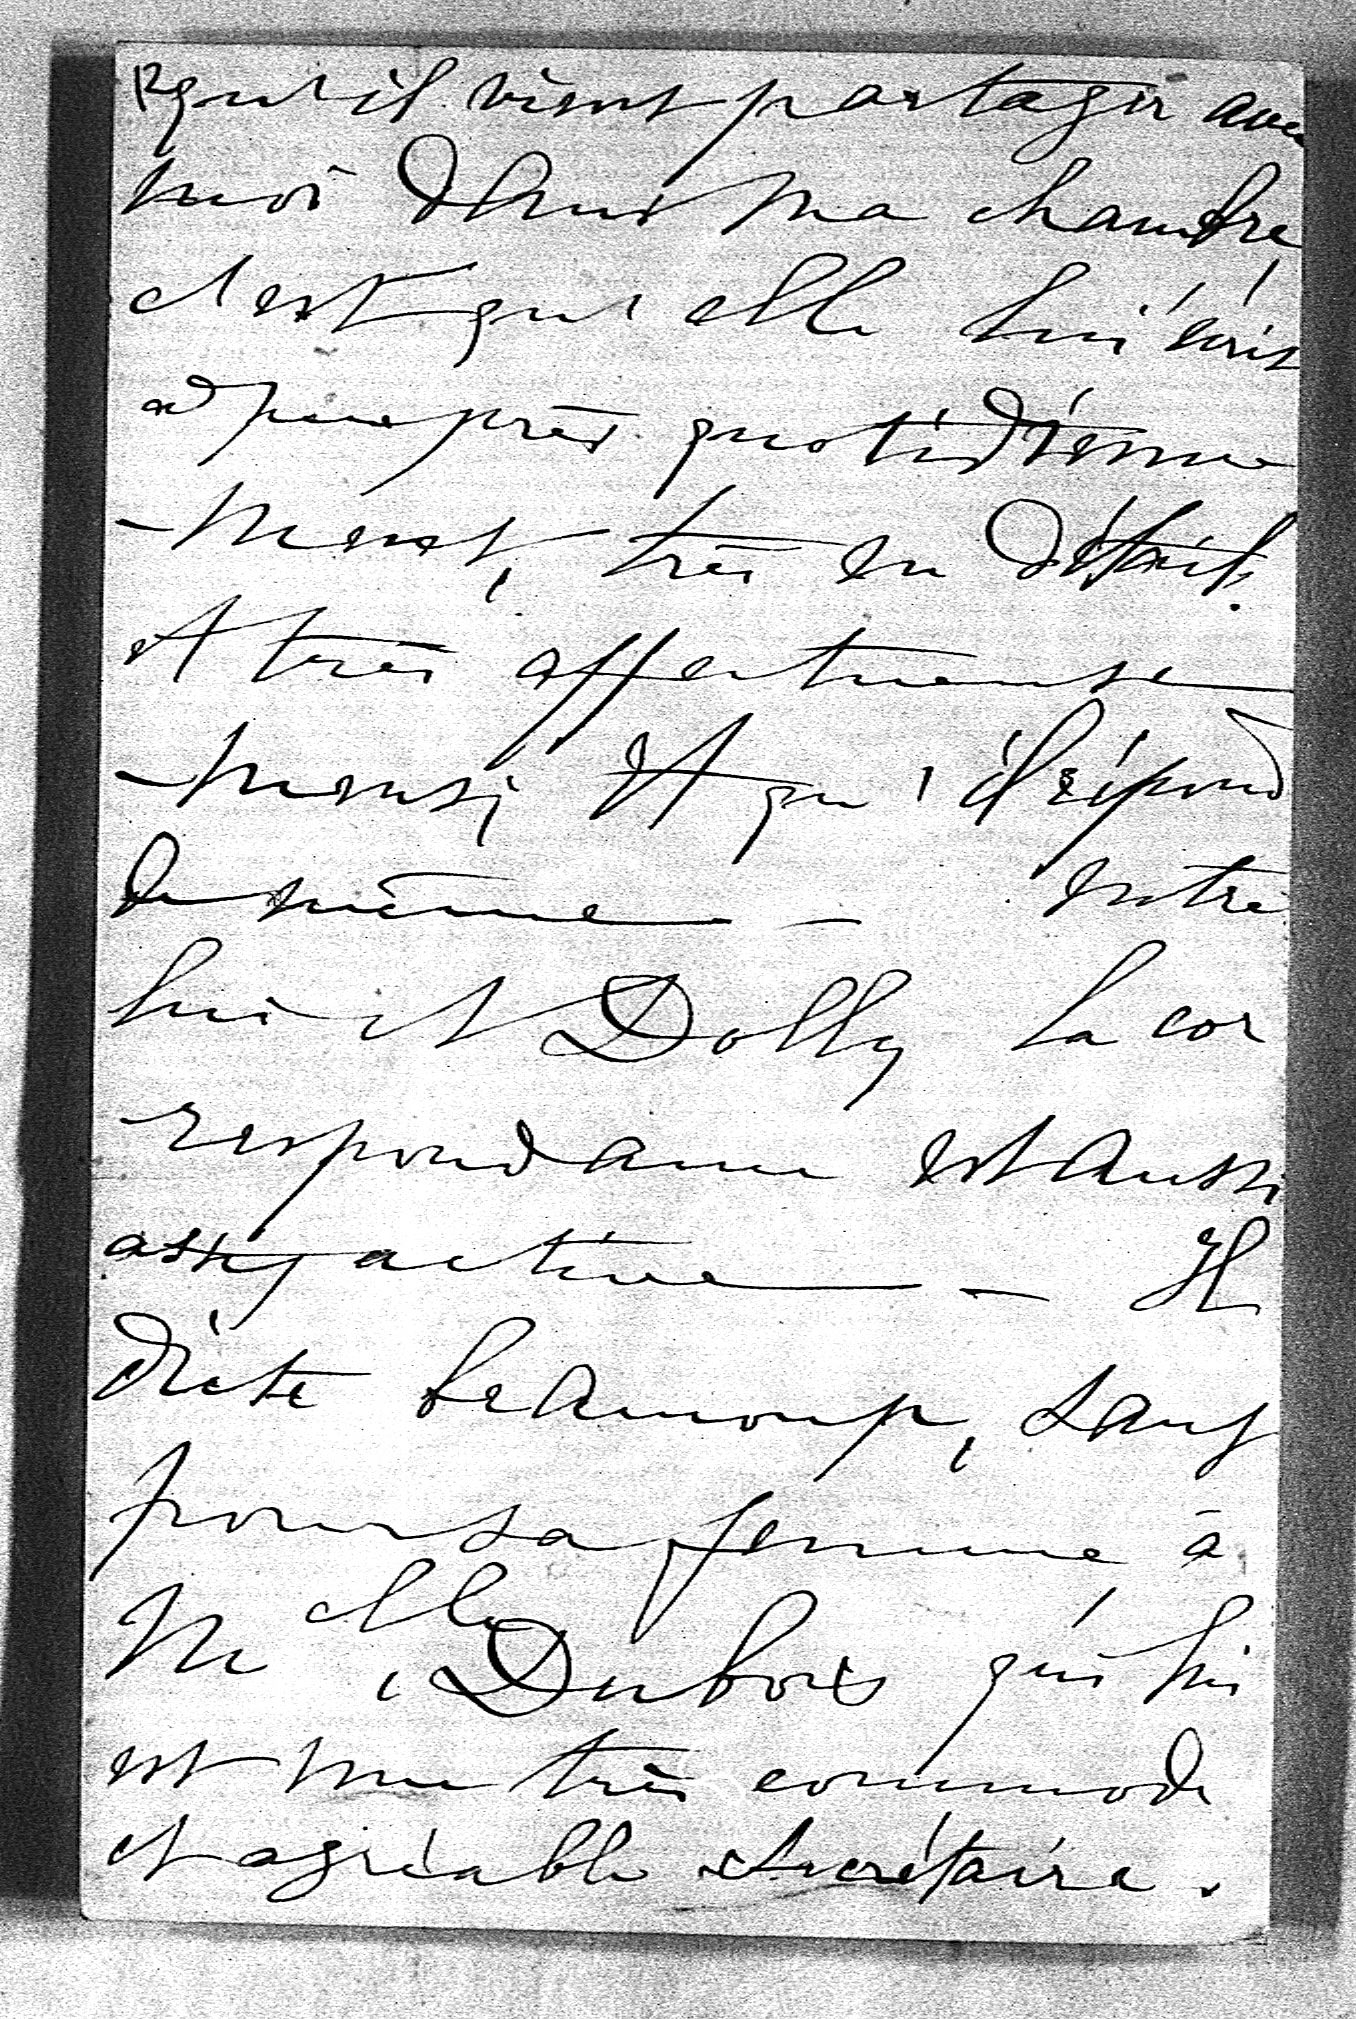 12
qu'il vient partager avec
moi dans ma chambre,
c'est qu'elle lui écrit
à peu près quotidienne
-ment, très en détails.
et très affectueuse
-ment; et qu'il répond
de même — entre
lui et Dolly la cor
respondance est aussi
assez active — Il
dicte beaucoup, sauf
pour sa femme à
Melle Dubois qui lui
est une très commode
et agréable secrétaire.